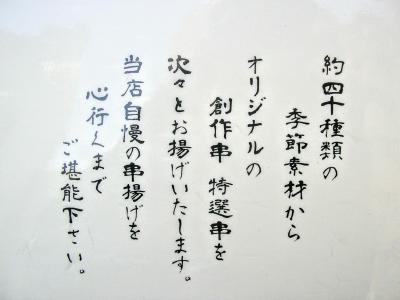 約四十種類の
季節素材から
オリジナルの
創作串 特選串を
次々とお揚げいたします。
当店自慢の串揚げを
心行くまで
ご堪能下さい。